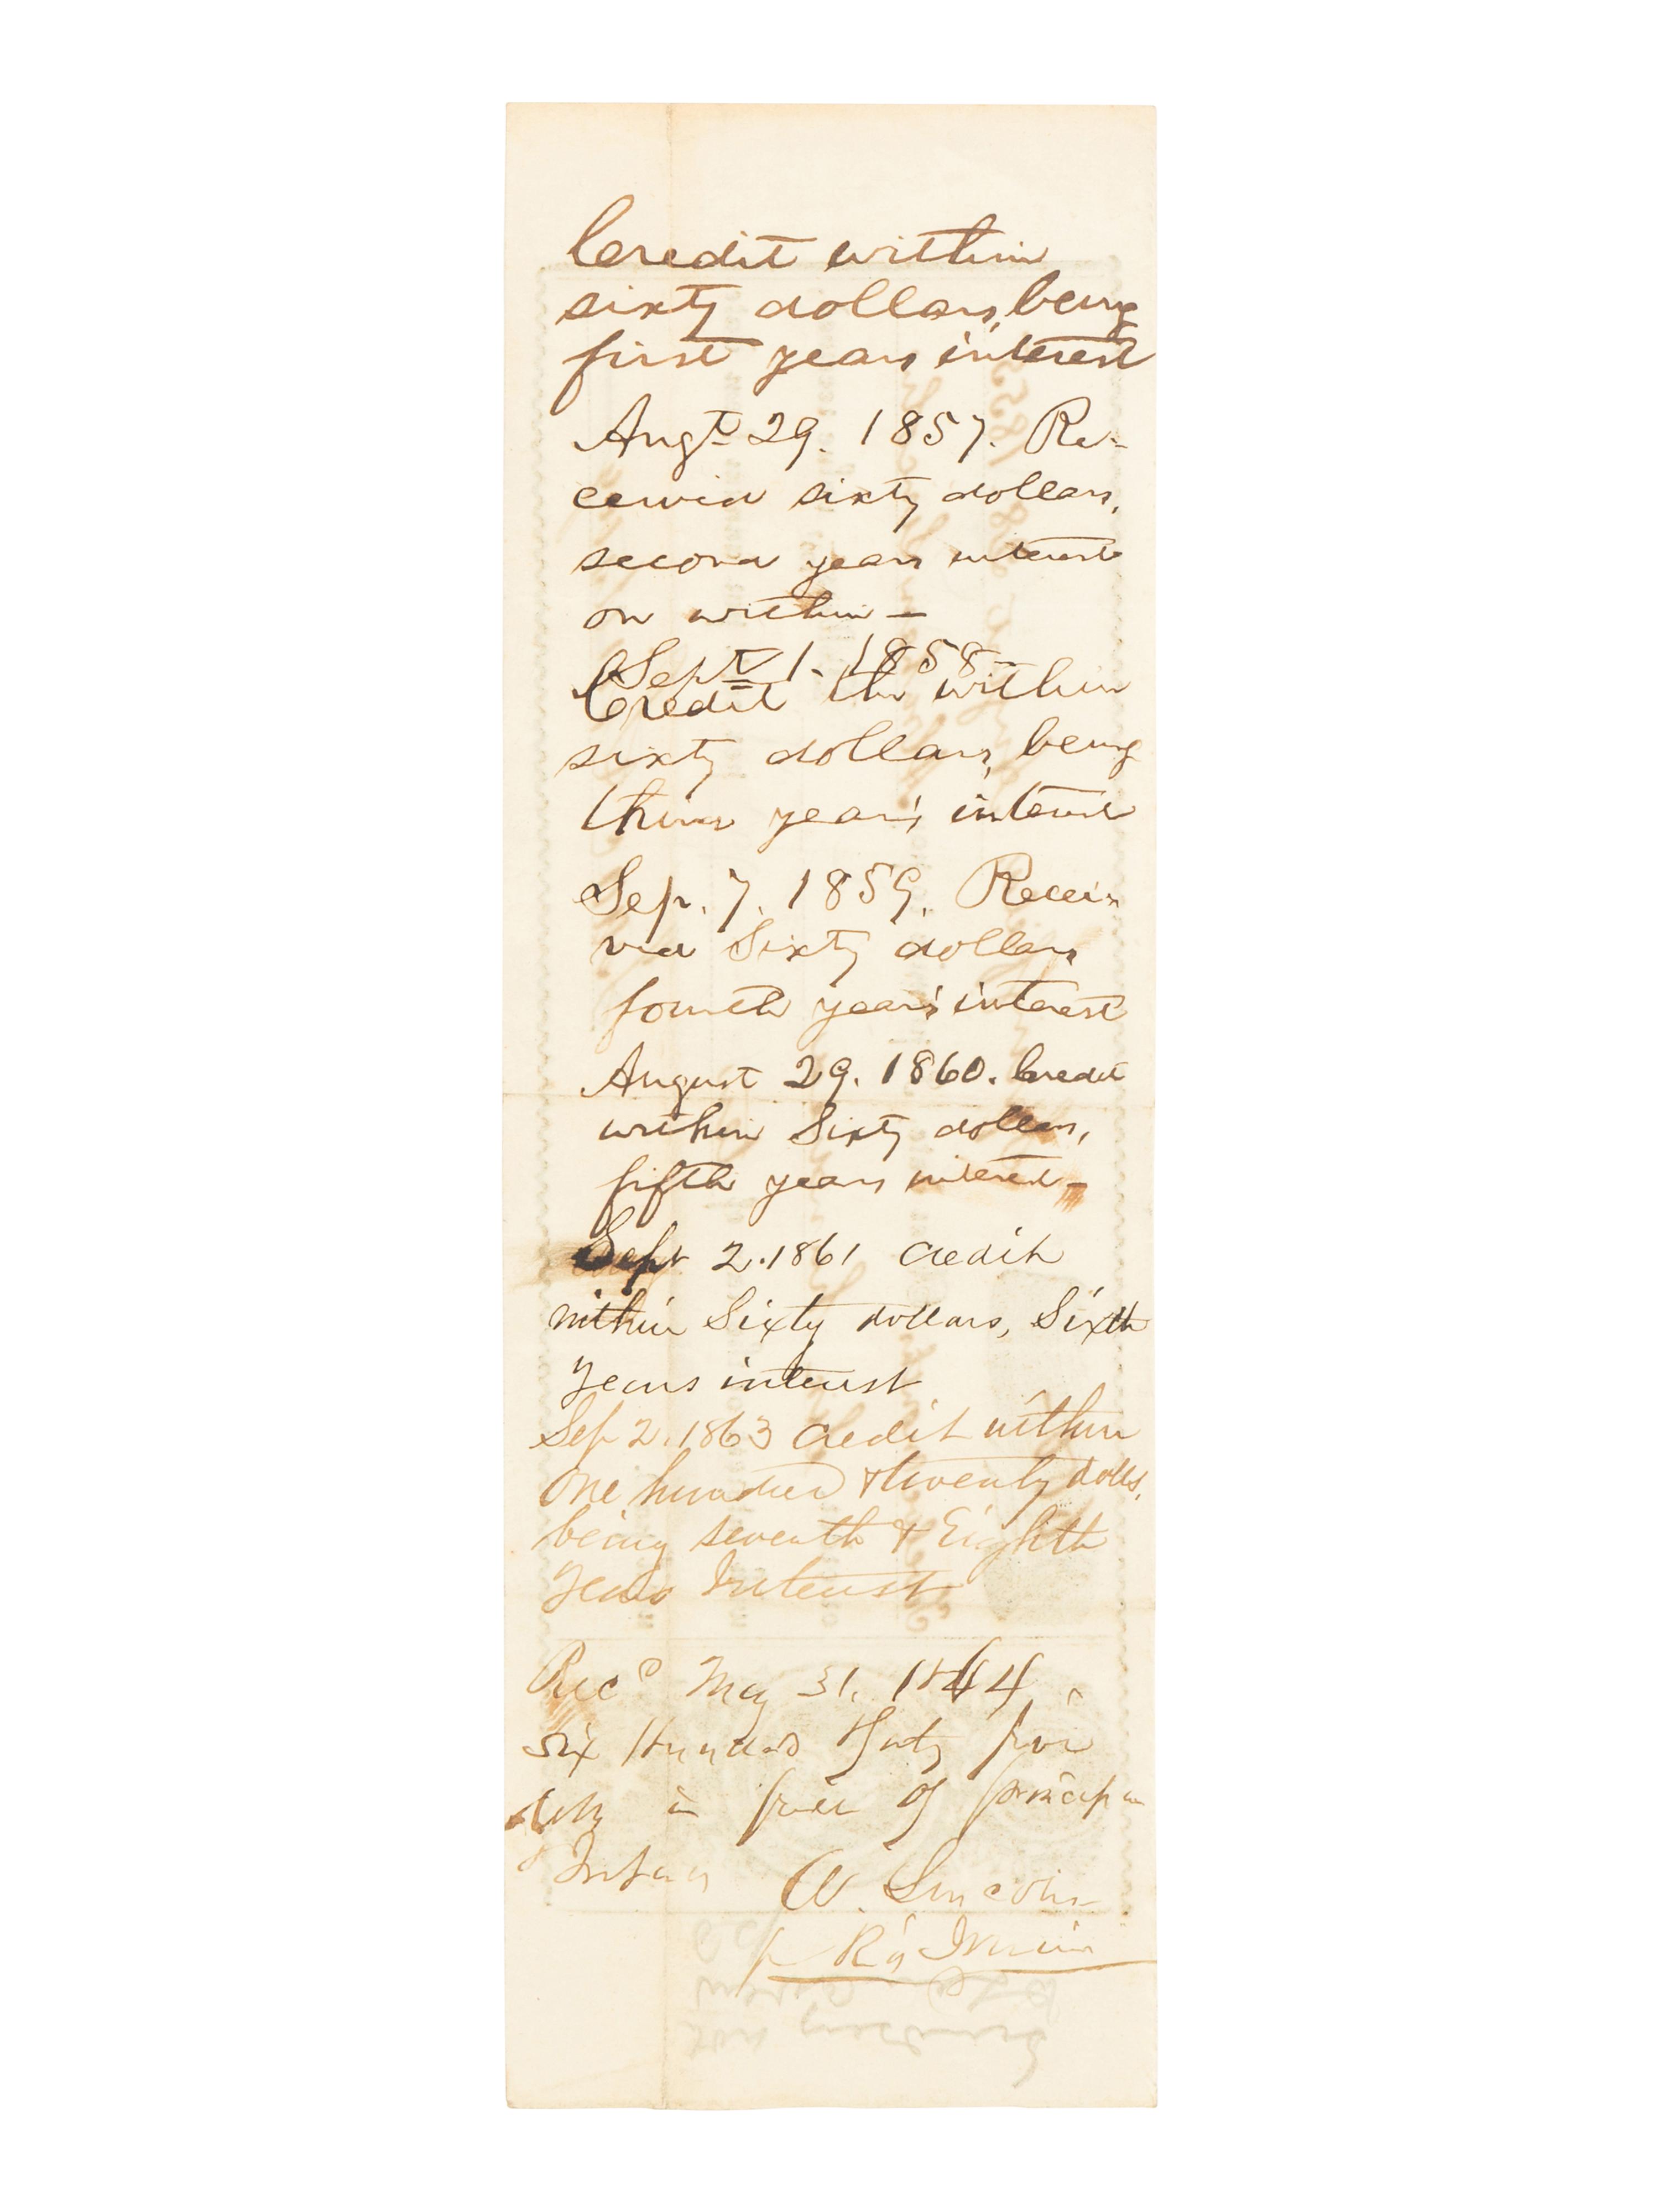 Credit within
sixty dollars, being
first years interest
Augt 29. 1857. Re-
ceived sixty dollars,
second years interest
on within —
Sept 1. 1858 —
Credit the within
sixty dollars, being
third year's interest
Sep. 7. 1859. Recei-
ved Sixty dollars
fourth year's interest
August 29. 1860. Credit
within Sixty dollars,
fifth years interest —
Sept 2. 1861 Credit
within Sixty dollars, Sixth
years interest
Sep 2. 1863 Credit within
One hundred & twenty dolls,
being seventh & Eighth
years Interest
Recd May 31, 1864
six Hundred forty five
in full of principal
& Interest A. Lincoln
p R Irwin